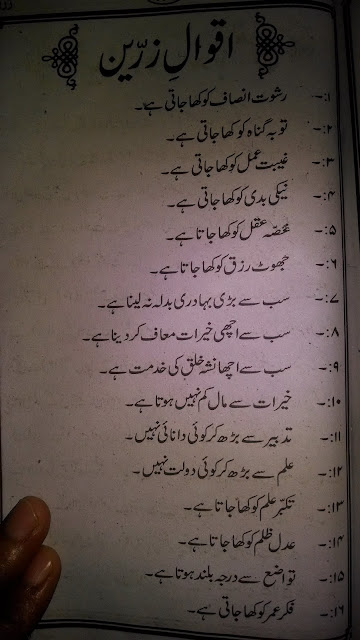 اقوالِ زرّین
۱:- رشوت انصاف کو کھا جاتی ہے۔
۲:- توبہ گناہ کو کھا جاتی ہے۔
۳:- غیبت عمل کو کھا جاتی ہے۔
۴:- نیکی بدی کو کھا جاتی ہے۔
۵:- غصّہ عقل کو کھا جاتا ہے۔
۶:- جھوٹ رزق کو کھا جاتا ہے۔
۷:- سب سے بڑی بہادری بدلہ نہ لینا ہے۔
۸:- سب سے اچھی خیرات معاف کر دینا ہے۔
۹:- سب سے اچھا نشہ خلق کی خدمت ہے۔
۱۰:- خیرات سے مال کم نہیں ہوتا ہے۔
۱۱:- تدبیر سے بڑھ کر کوئی دانائی نہیں۔
۱۲:- علم سے بڑھ کر کوئی دولت نہیں۔
۱۳:- تکبّر علم کو کھا جاتا ہے۔
۱۴:- عدل ظلم کو کھا جاتا ہے۔
۱۵:- تواضع سے درجہ بلند ہوتا ہے۔
۱۶:- فکر عمر کو کھا جاتی ہے۔